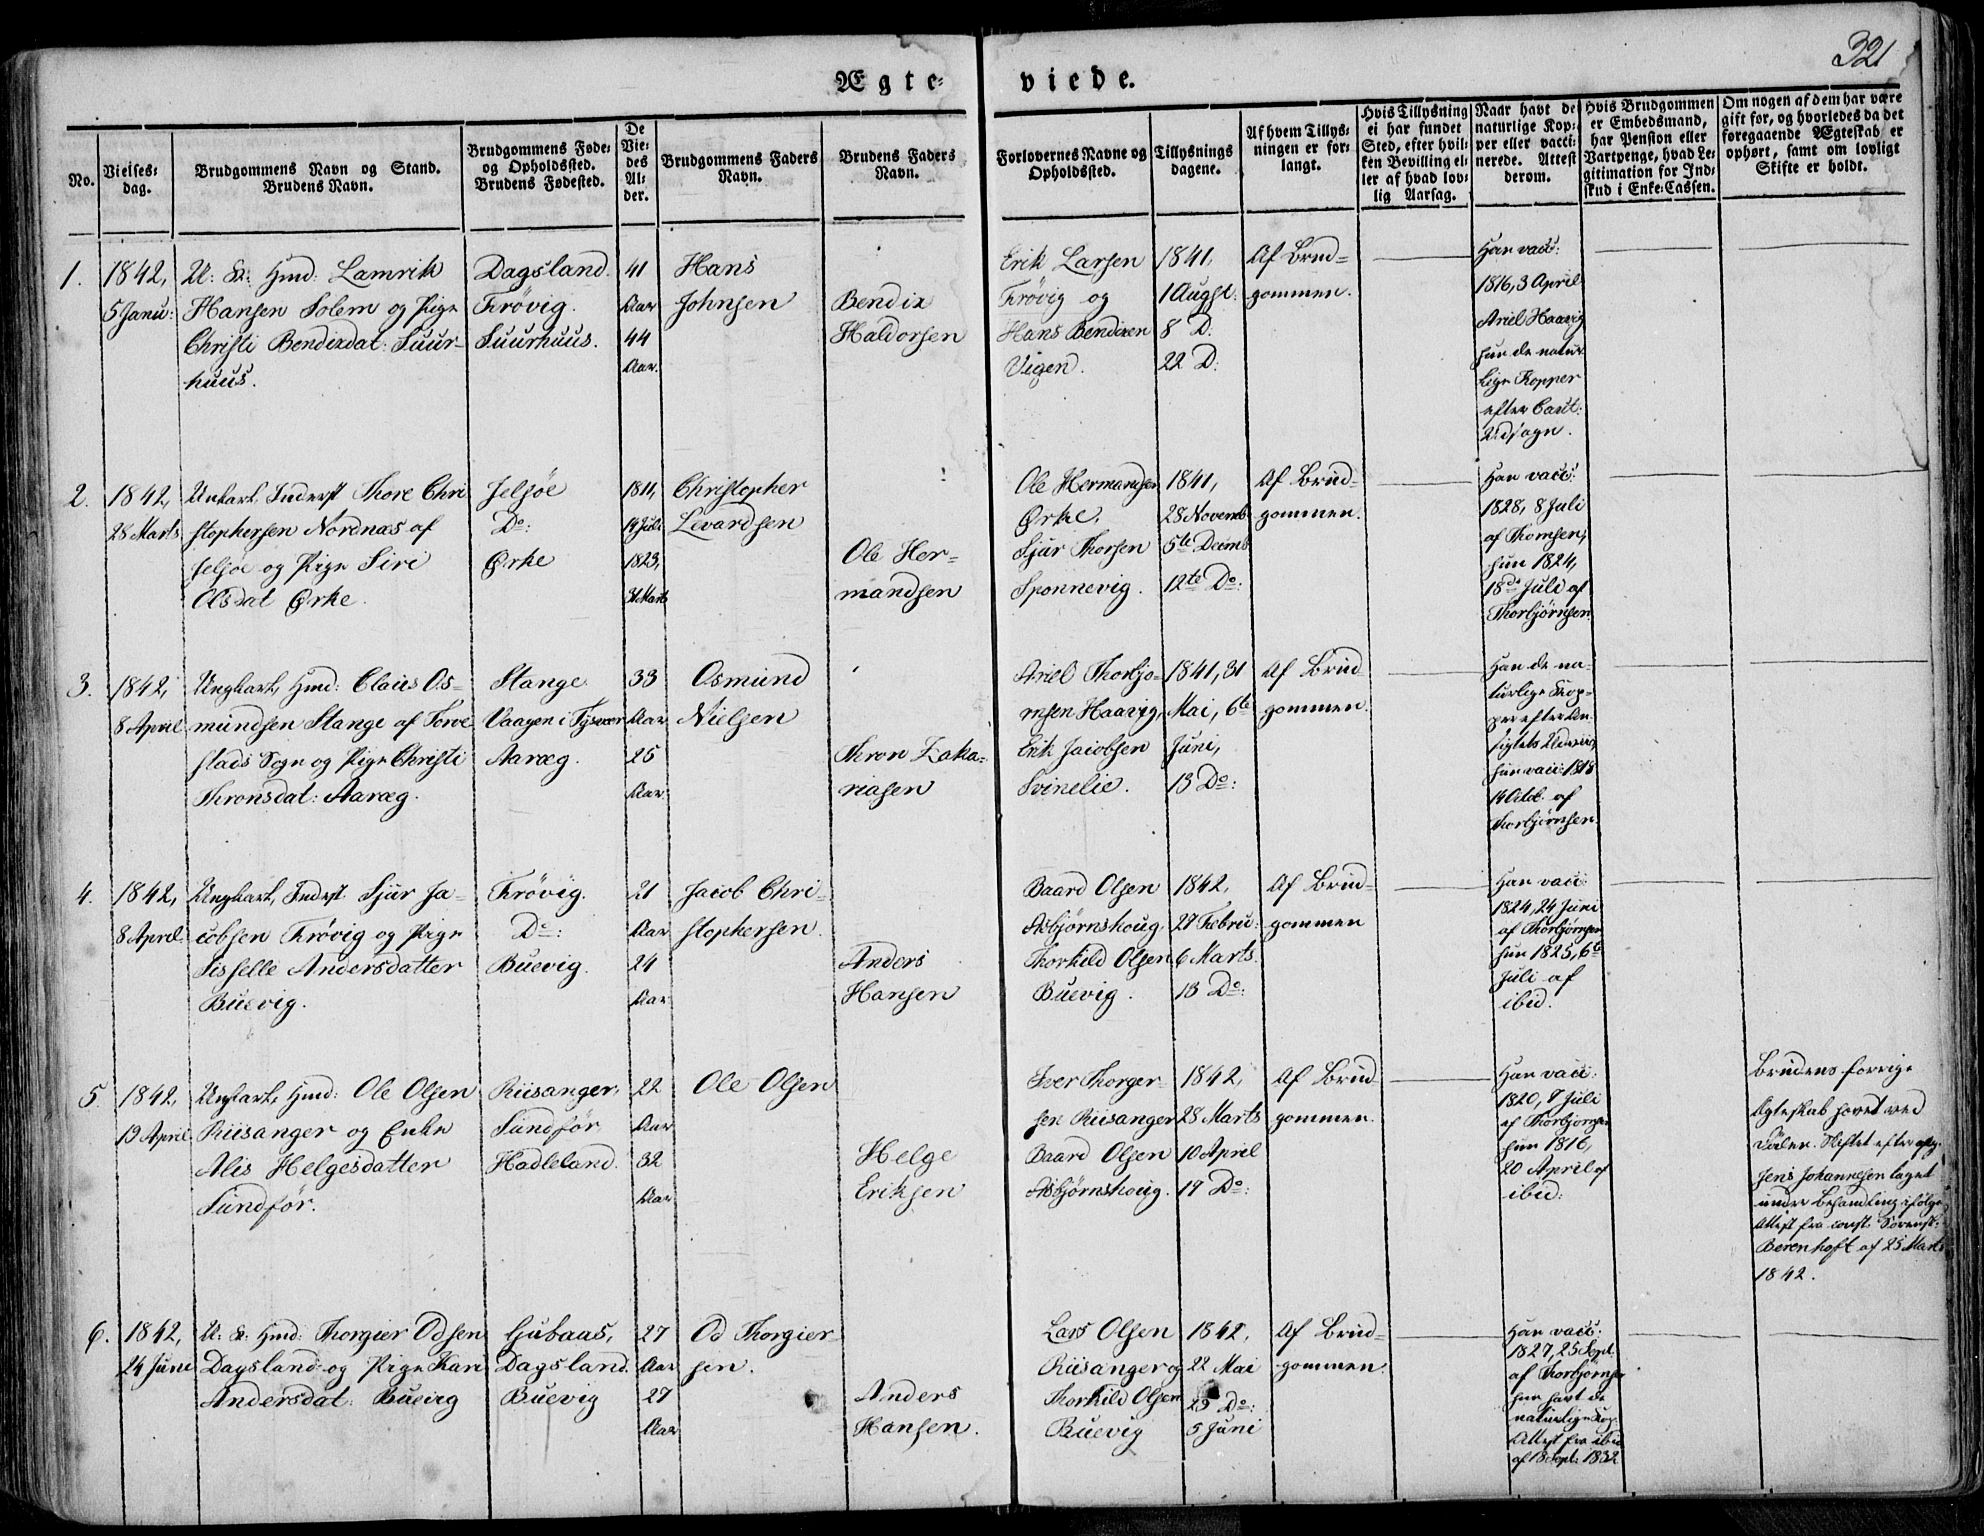 321
Ægte- viede.
No.
Vielses-
dag.
Brudgommens Navn og Stand.
Brudens Navn.
Brudgommens Føde-
og Opholdssted.
Brudens Fødested.
De
Vie-
des
Al-
der.
Brudgommens Faders
Navn.
Brudens Faders
Navn.
Forlovernes Navne og
Opholdssted.
Tillysnings
dagene.
Af hvem Tillys-
ningen er for-
langt.
Hvis Tillysning
ei har fundet
Sted, efter hvil-
ken Bevilling el-
ler af hvad lov-
lig Aarsag.
Naar havt de
naturlige Kop-
per eller vacci-
nerede. Attest
derom.
Hvis Brudgommen
er Embedsmand,
har Pension eller
Vartpenge, hvad Le-
gitimation for Ind-
skud i Enke-Cassen.
Om nogen af dem har være
gift før, og hvorledes da det
foregaaende Ægteskab er
ophørt, samt om lovligt
Skifte er holdt.
1.
1842,
5 Janu:
U: K: Hmd: Lamrik
Hansen Solem og Pige
Christi Bendixdat: Suur-
huus.
Dagsland.
Frövig.
Suurhuus.
41
Aar
44
Aar.
Hans
Johnsen
Bendix
Haldorsen
Erik Larsen
Frövig og
Hans Bendixen
Vigen.
1841,
1 Augst:
8 D.
22 D:
Af Brud-
gommen.
Han vacc:
1816, 3 April
Ariel Haavig
hun de natur
lige Kopper
efter Cant:
Udsagn.
2.
1842,
28 Marts
Unkarl, Inderst Thore Chri
stophersen Nordnæs af
Jelsöe og Pige Siri
Olsdat Ørke.
Jelsöe
Do:
Ørke
1811,
19 Juli
1823,
31 Marts
Christopher
Levardsen
Ole Her-
mandsen
Ole Hermandsen
Ørke,
Sjur Thorsen
Sponnevig.
1841,
28 Novemb
5te Decmb
12te Do:
Af Brud-
gommen.
Han vacc:
1828, 8 Juli
af Thomsen,
hun 1824,
18de Juli af
Thorbjørnsen
3.
1842,
8 April
Ungkarl, Hmd: Claus Os-
mundsen Stange af Torve
stads Sogn og Pige Christi
Thronsdat: Aaræg.
Stange
Vaagen i Tysvær
Aaræg.
33
Aar
25
Aar.
Osmund
Nielsen
Thron Zaka-
riasen
Ariel Thorbjø-
rnsen Haavig,
Erik Jacobsen
Svinelie.
1841, 31
Mai, 6te
Juni,
13 Do:
Af Brud-
gommen.
Han de na-
turlige Kop-
per efter An-
sigtets Udviis,
hun vacc: 1818
14 Octob. af
Thorbjørnsen.
4.
1842,
8 April.
Ungkarl, Inderst Sjur Ja-
cobsen Frövig og Pige
Sisselle Andersdatter
Buevig.
Frövig.
Do:
Buevig.
21
Aar
24
Aar
Jacob Chri-
stophersen.
Anders
Hansen
Baard Olsen
Asbjørnshoug,
Thorkild Olsen
Buevig.
1842,
27 Febru:
6 Marts.
13 Do:
Af Brud-
gommen
Han vacc
1824, 24 Juni
af Thorbjørnsen
hun 1825, 6te
Juli af
ibid.
5.
1842,
19 April
Ungkarl, Hmd: Ole Olsen
Riisanger og Enke
Alis Helgesdatter
Sundför.
Riisanger,
Sundför
Hadleland.
22
Aar
32
Aar
Ole Olsen
Helge
Eriksen
Iver Thorger-
sen Riisanger
Baard Olsen
Asbjørnshoug.
1842,
28 Marts
10 April
17 Do:
Af Brud-
gommen.
Han vacc:
1820, 7 Juli
af Thorbjørnsen
hun 1816,
20 April af
ibid:
Brudens forrige
Ægteskab hævet ved
Döden. Skiftet efter afg.
Jens Johannesen taget
under Behandling ifølge
Attest fra const. Sorenskr.
Berenhoft af 25 Marts
1842.
6.
1842,
24 Juni
U: K: Hmd: Thorgier Odsen
Dagsland og Pige Kari
Andersdat: Buevig
Gubaas,
Dagsland.
Buevig
27
Aar
27
Aar
Od Thorgier
sen.
Anders
Hansen.
Lars Olsen
Riisanger og
Thorkild Olsen
Buevig
1842,
22 Mai
29 Do:
5 Juni
Af Brud-
gommen.
Han vacc:
1827, 25 Sept.
af Thorbjørnsen
hun havt de
naturlige Kop.
Attest fra ibid
af 18 Sept: 1832